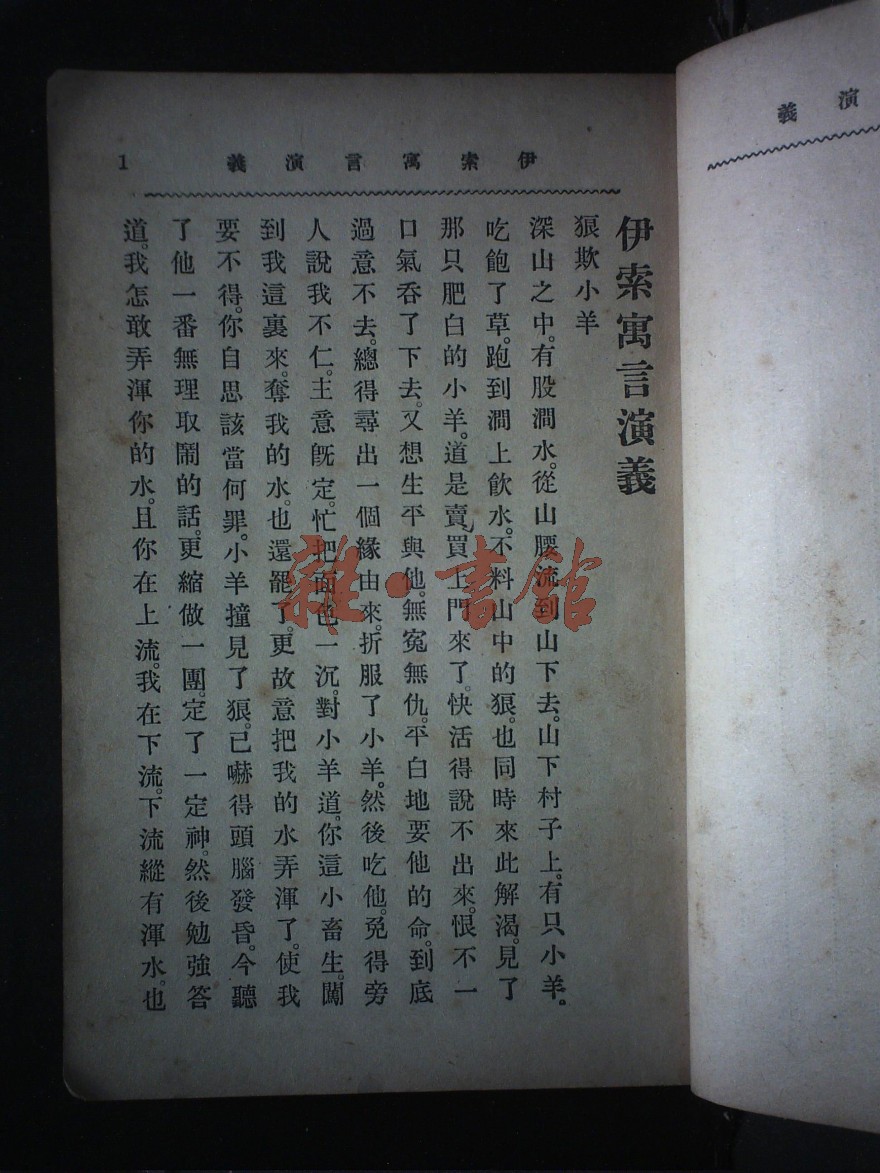 伊索寓言演義
1
伊索寓言演義
狠欺小羊
深山之中。有股澗水。從山腰流到山下去。山下村子上。有只小羊。
吃飽了草。跑到澗上飲水。不料山中的狠。也同時來此解渴。見了
那只肥白的小羊。道是賣買上門來了。快活得說不出來。恨不一
口氣吞了下去。又想生平與他。無冤無仇。平白地要他的命。到底
過意不去。總得尋出一個緣由來。折服了小羊。然後吃他。免得旁
人說我不仁。主意旣定。忙把面也一沉。對小羊道。你這小畜生。闖
到我這裏來。奪我的水。也還罷了。更故意把我的水弄渾了。使我
要不得。你自思該當何罪。小羊撞見了狠。已嚇得頭腦發昏。今聽
了他一番無理取鬧的話。更縮做一團。定了一定神。然後勉強答
道。我怎敢弄渾你的水。且你在上流。我在下流。下流縱有渾水。也
演義
雜·書館